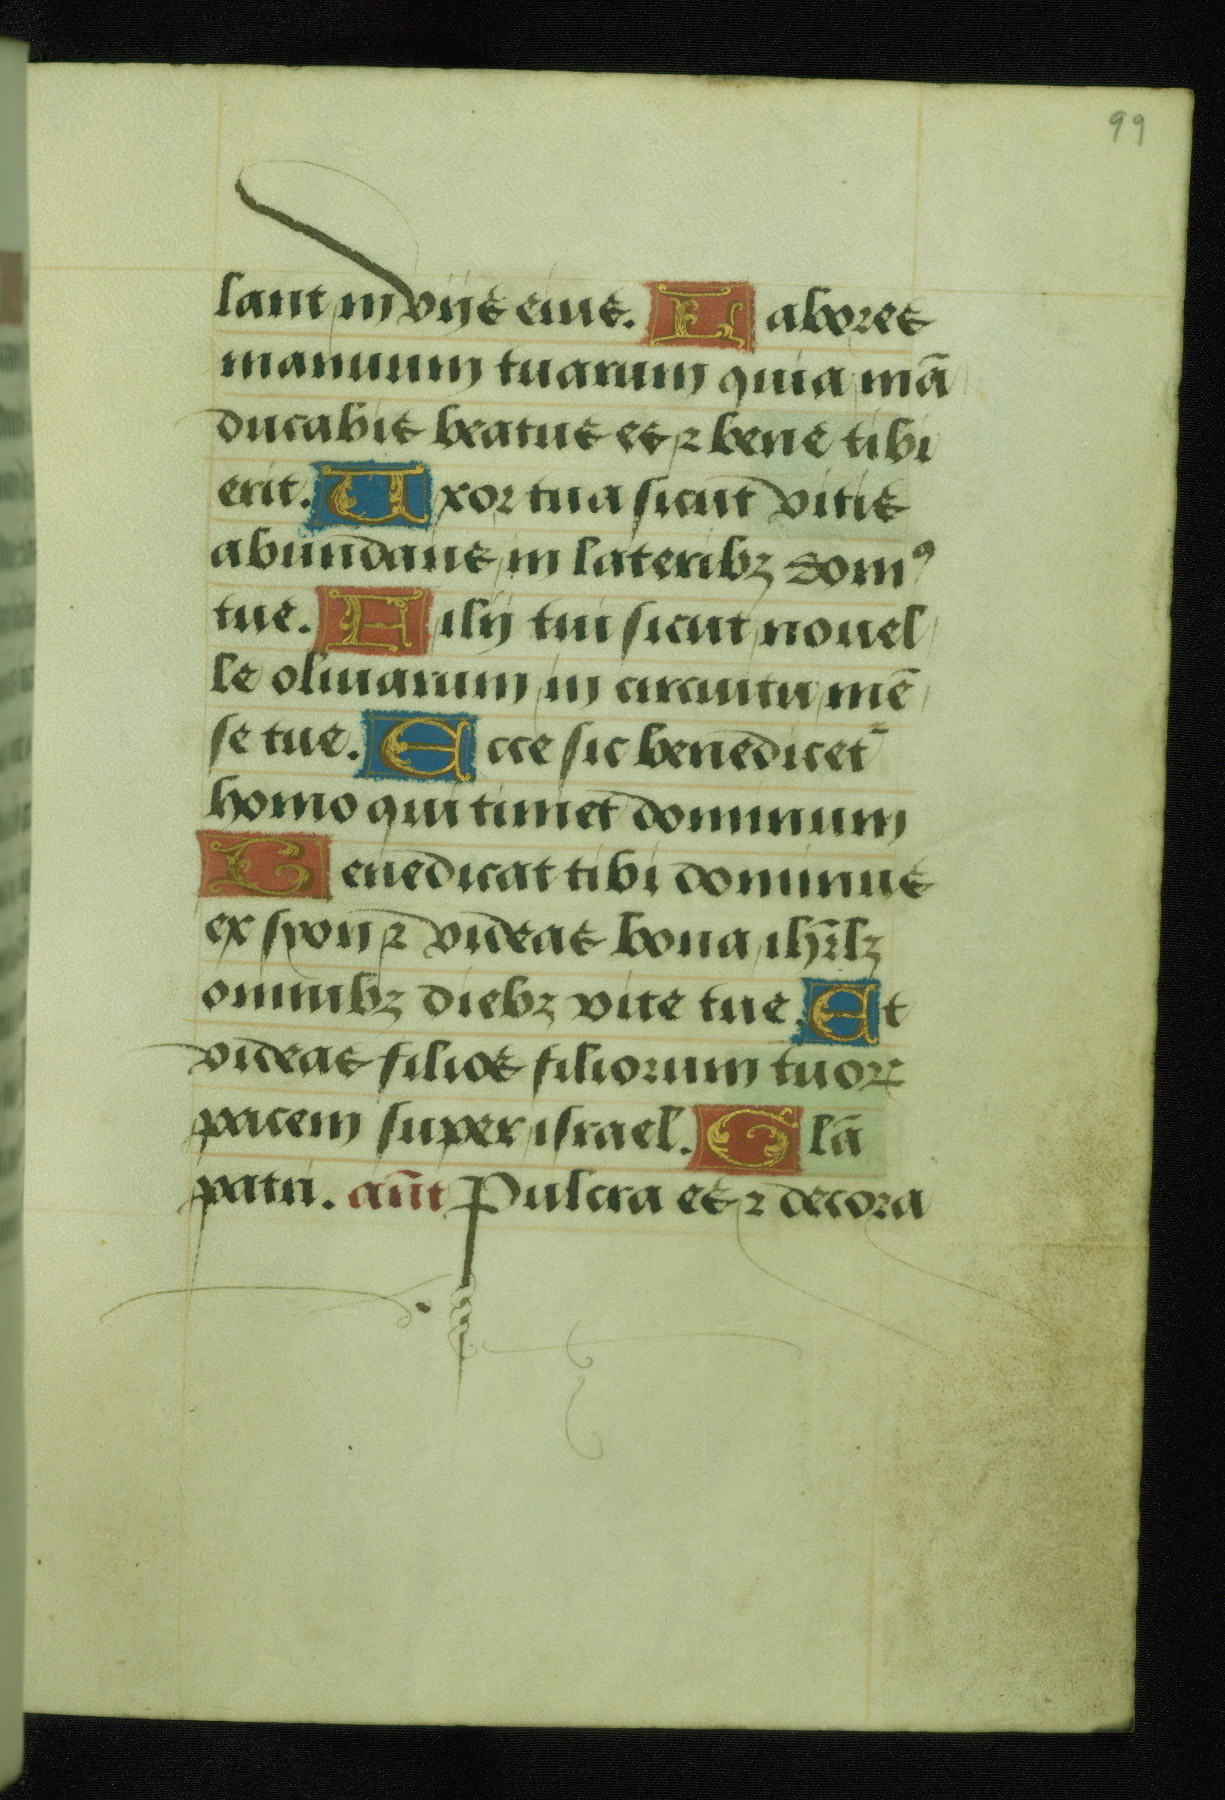 99
lant in vijs eius. Labores
manuum tuarum quia mā
ducabis beatus es ꝛ bene tibi
erit. Uxor tua sicut vitis
abundans in lateribꝫ domꝰ
tue. Filij tui sicut nouel
le oliuarum in circuitu mē
se tue. Ecce sic benedicet᷑
homo qui timet dominum
Benedicat tibi dominus
ex syon ꝛ videas bona ihr̄lꝫ
omnibꝫ diebꝫ vite tue. Et
videas filios filiorum tuoꝝ
pacem super israel. Glā
patri. an̄t Pulcra es ꝛ decora